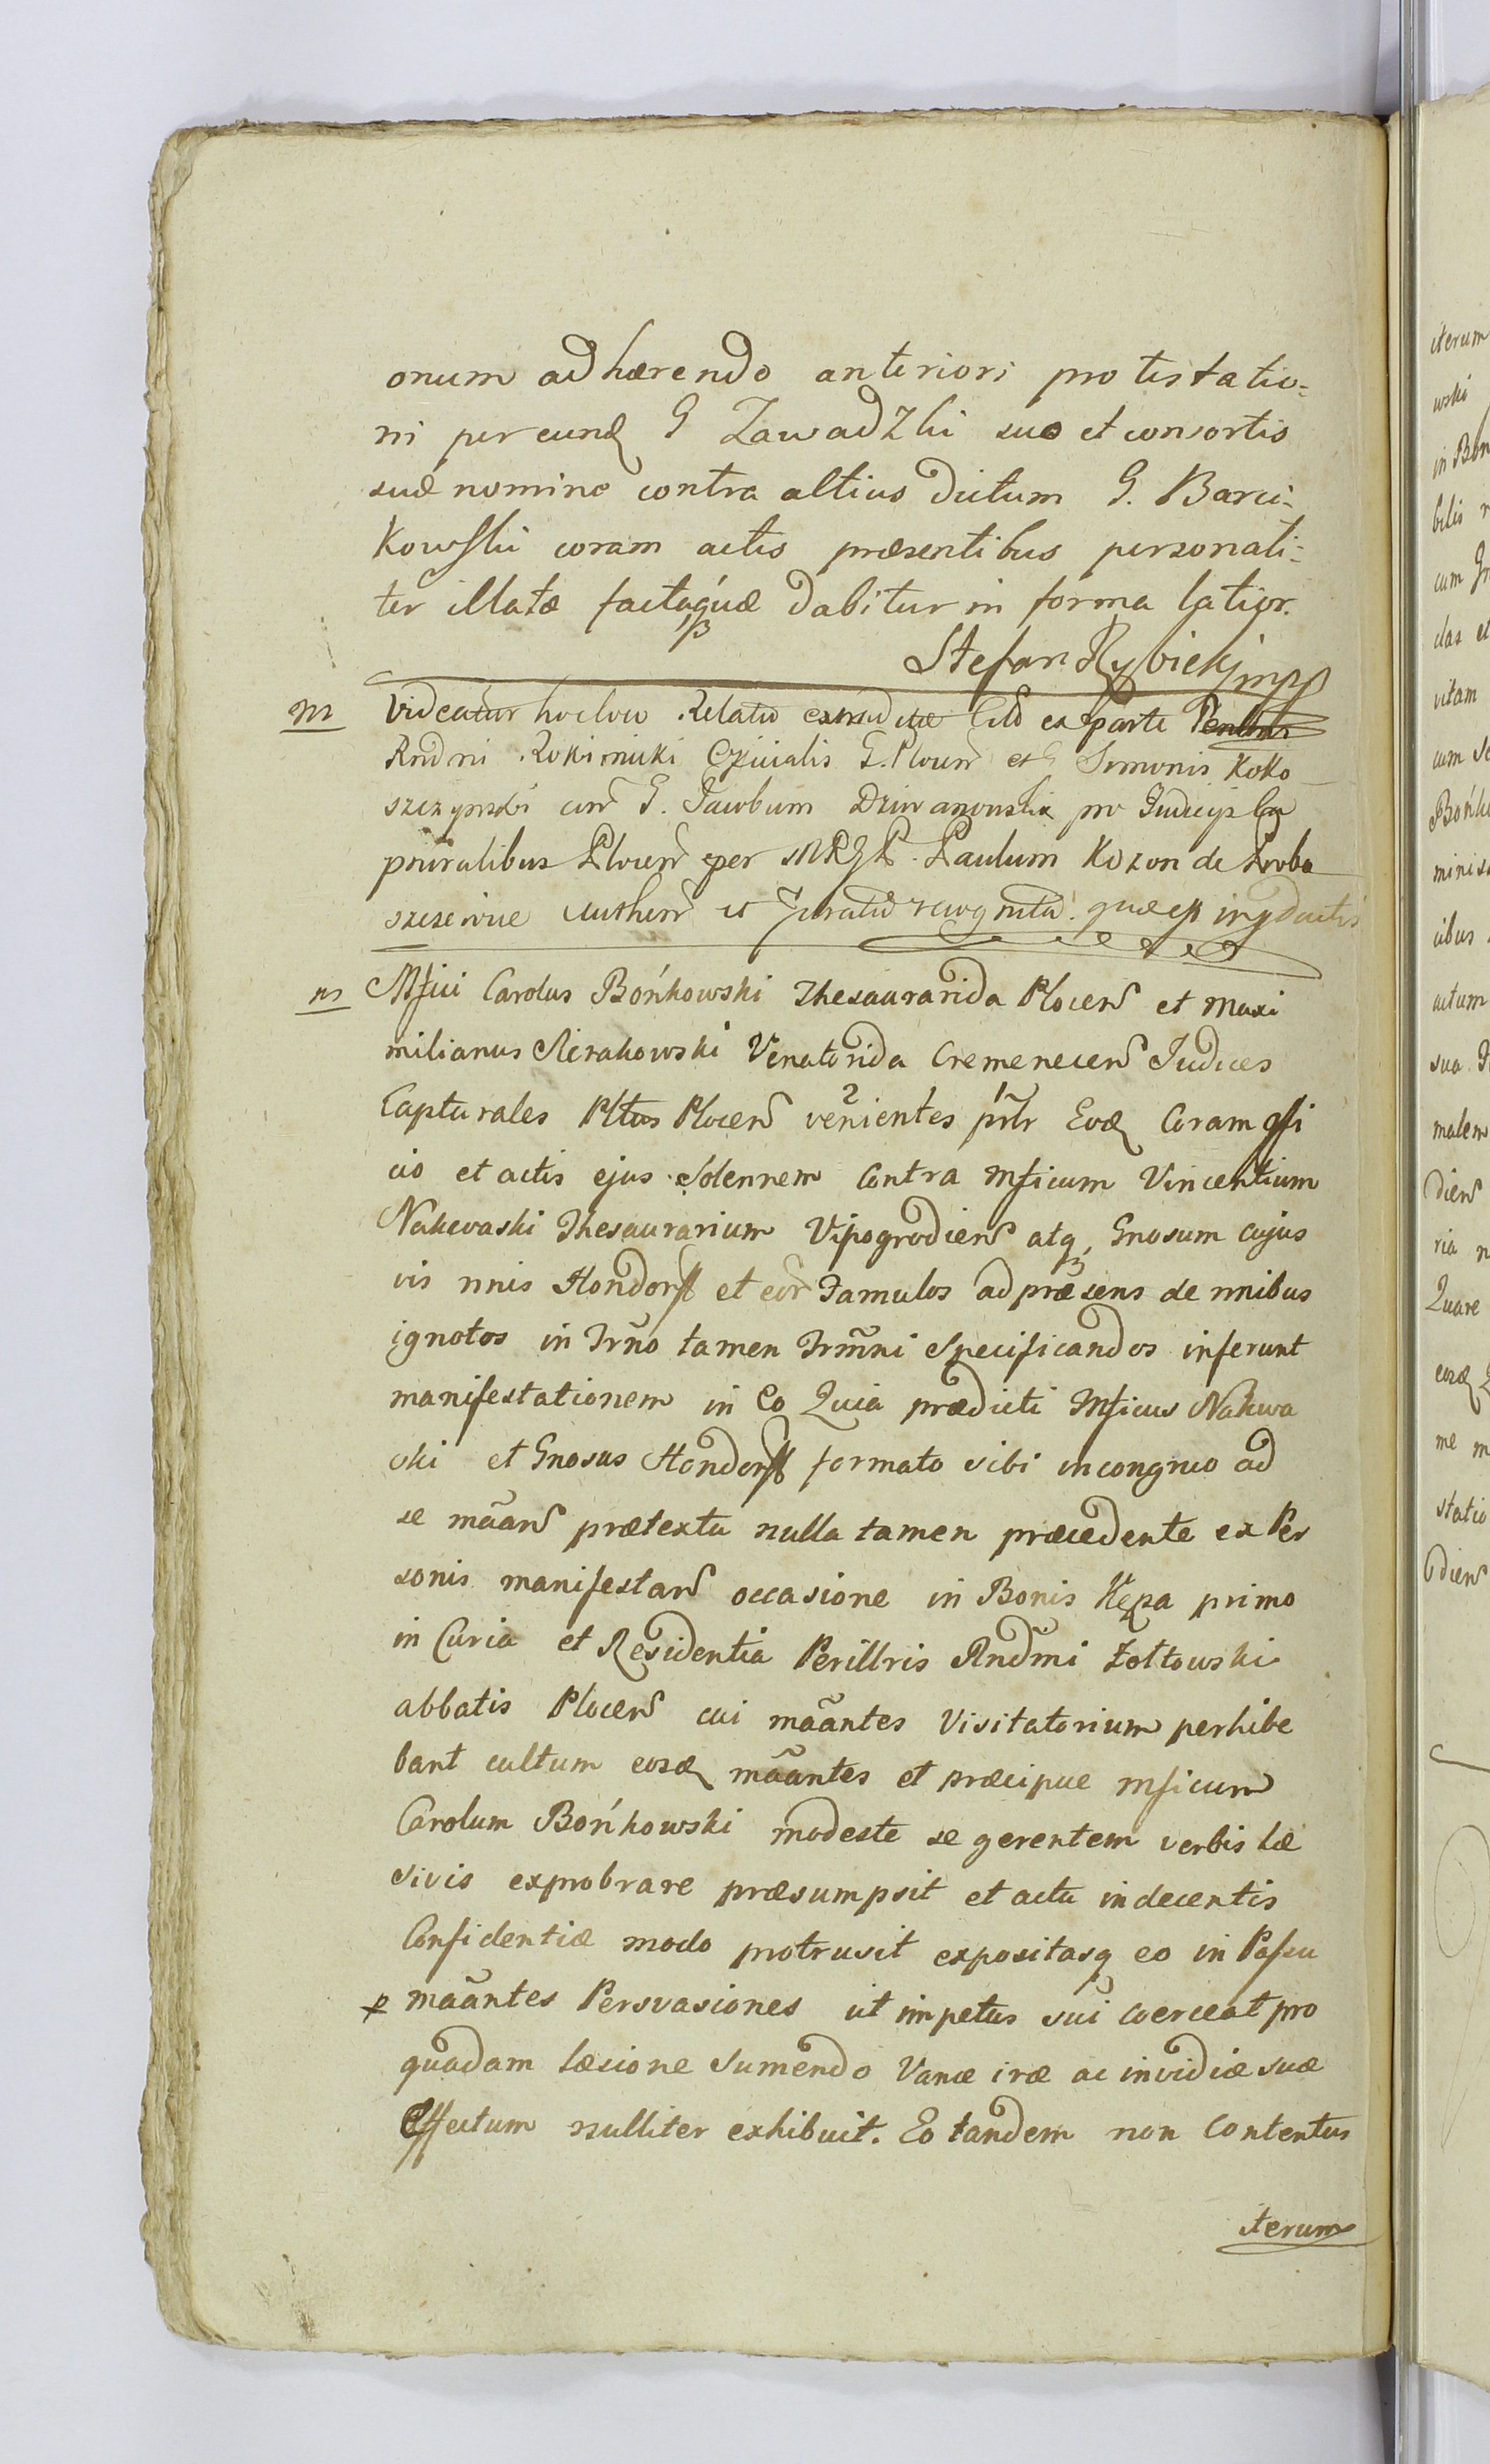 onum adhærendo anteriori protestatio=
ni per eund G Zawadzki suo et consortis
suæ nomine contra altius dictum G. Barci=
kowski coram actis præsentibus personali=
ter illatæ factæquæ dabitur in forma latior.
Stefan Rybicki mp
m Videatur hocloco Relatio extraditæ ex parte
Rndmi Rokitnicki Officialis G. Plocen et Simonis Koko
szczynski con G. Jacobum Dziwanowski pro Judicijs Ca
pturalibus Plocen per MRGP. Paulum Kozon de Proba
szczewice Authen et Juratio recognita. quæ est in productis
m Mfici Carolus Bońkowski Thesaurarida Plocen et Maxi
milianus Sierakowski Venatorida Cremenecen Judices
Capturales Pltus Plocen venientes pntr Eod Coram offi
cio et actis ejus Solennem Contra Mficum Vincentium
Nakwaski Thesaurarium Vissogrodien atq Gnosum cujus
vis nnis Hondorff et eor Famulos ad præsens de nnibus
ignotos in Trno tamen Trmni Specificandos inferunt
manifestationem in Eo Quia prædicti Mficus Nakwa
ski et Gnosus Hondorff formato sibi incongruo ad
se mãan prætextu nulla tamen præcedente ex Per
sonis manifestan occasione in Bonis Kępa primo
in Curia et Residentia Perillris Rndmi Zołtowski
abbatis Plocen cui mãantes Visitatorium perhibe
bant cultum eosd mãantes et præcipue Mficum
Carolum Bońkowski modeste se gerentem verbis læ
sivis exprobrare præsumpsit et actu indecentis
Confidentiæ modo protrusit expositasq eo in Passu
p mãantes Persvasiones ut impetus sui coerceat pro
quadam læsione Sumendo Vanæ iræ ac invidiæ suæ
Effectum nulliter exhibuit. Eo tandem non Contentus
iterum